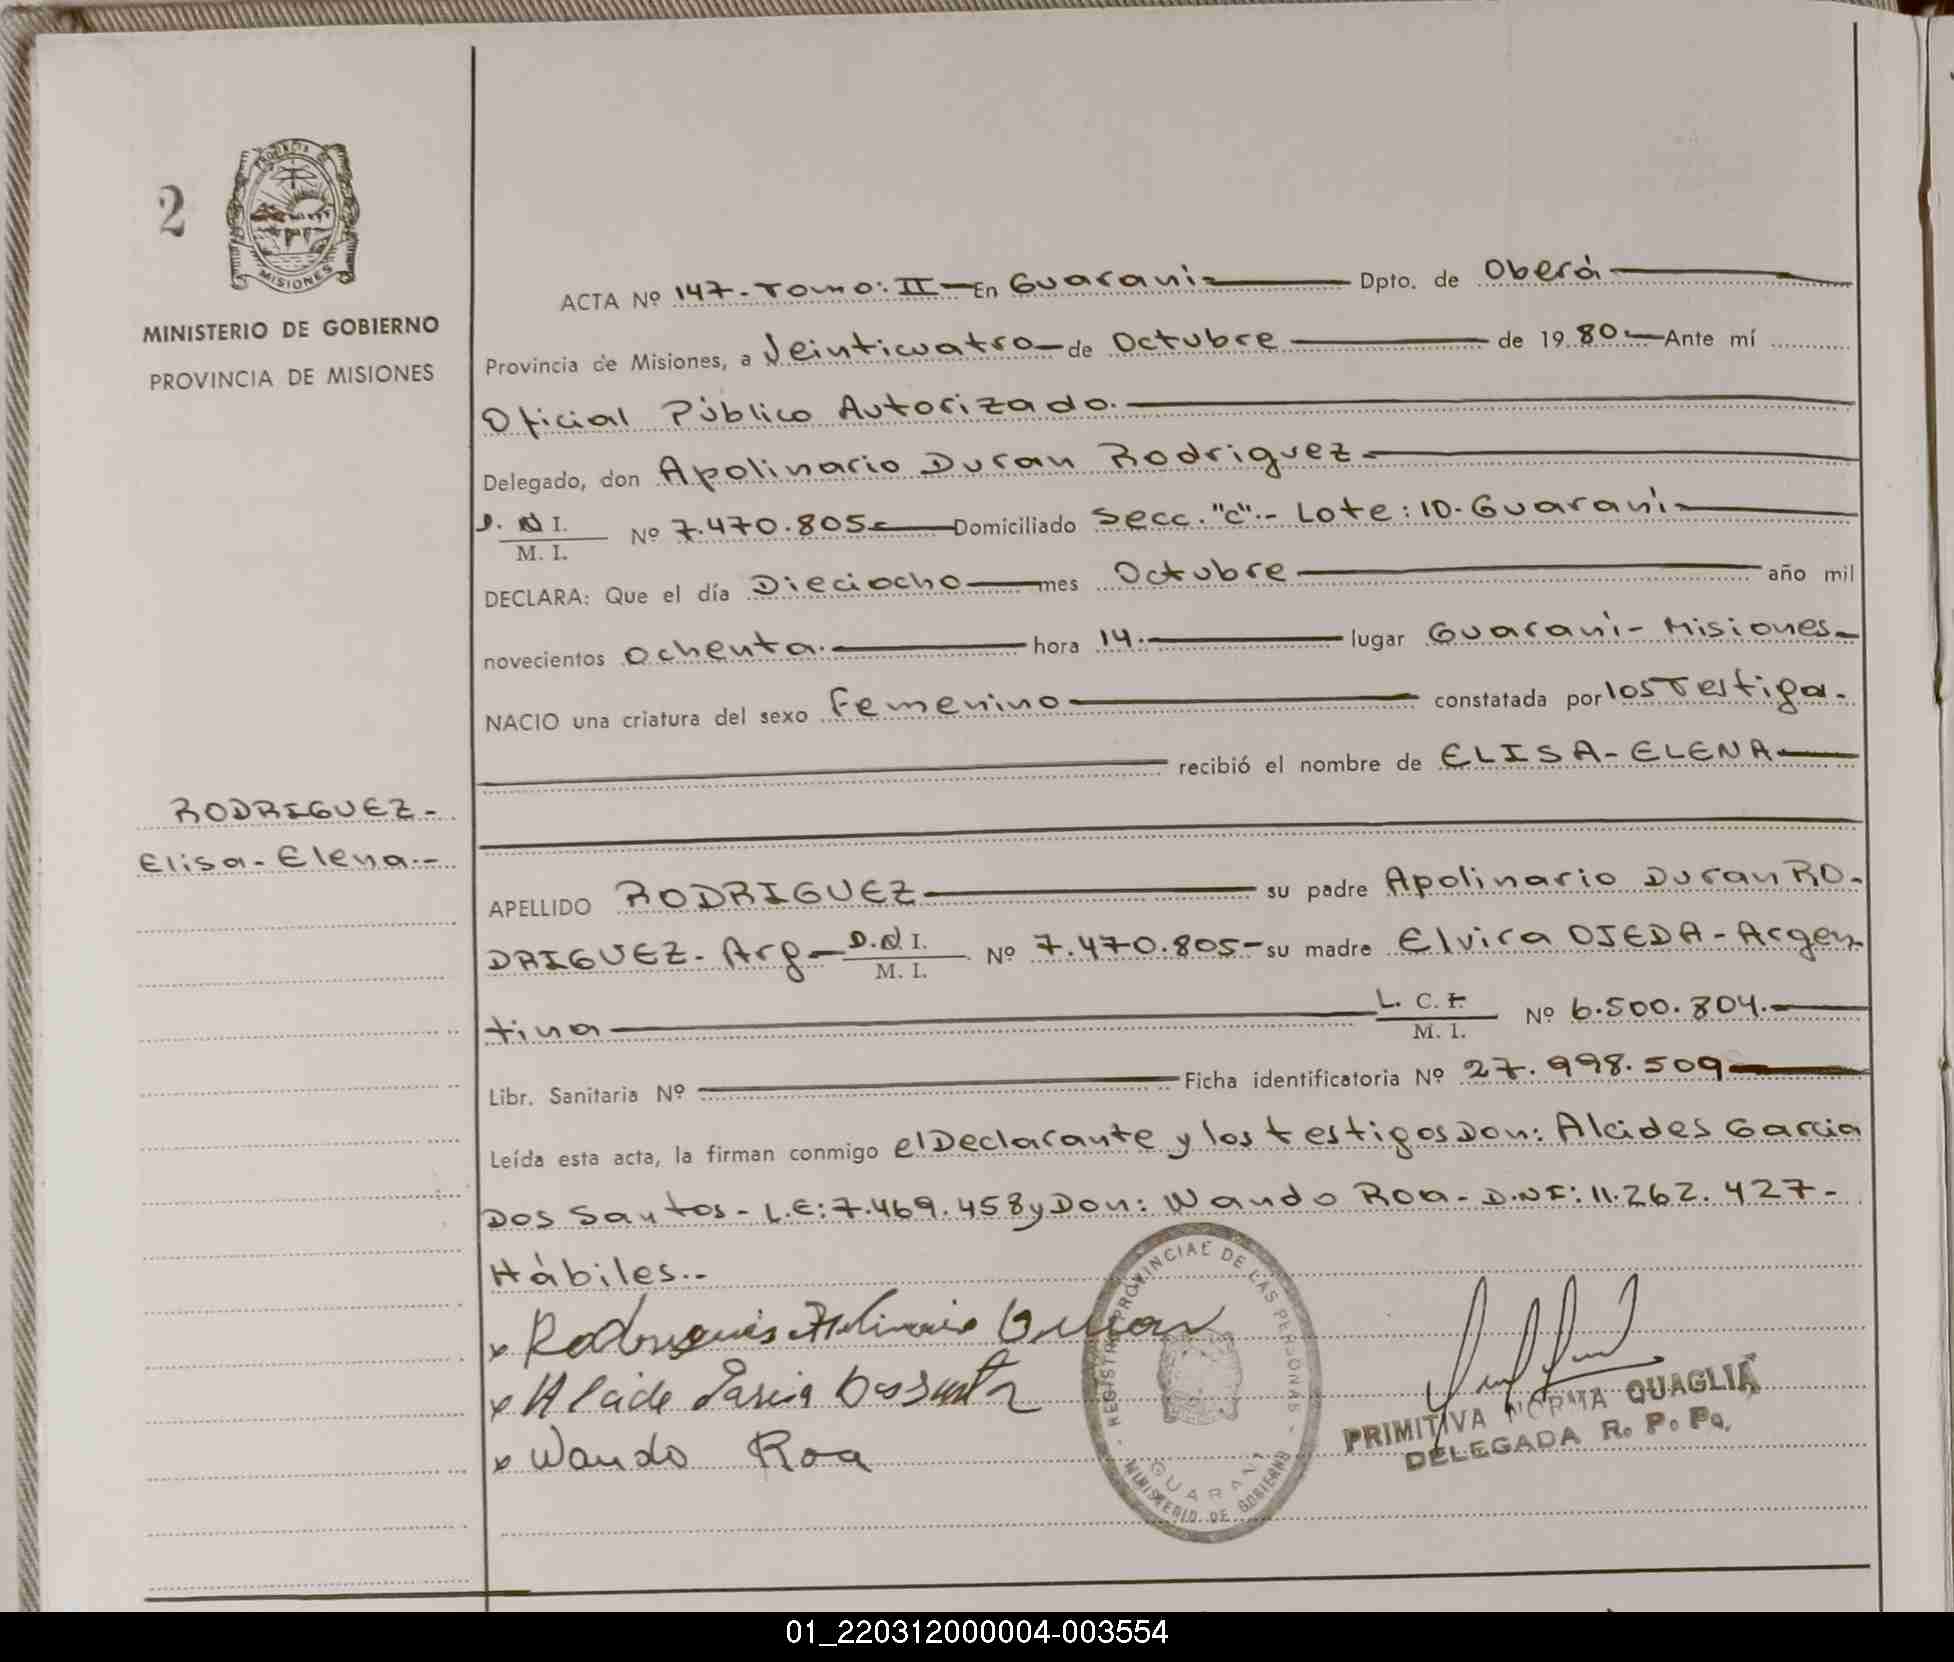 2
PROVINCIA DE
MISIONES
MINISTERIO DE GOBIERNO
PROVINCIA DE MISIONES
ACTA Nº 147.- Tomo: II - En Guaraní Dpto. de Oberá
Provincia de Misiones, a Veinticuatro de Octubre de 1980 Ante mí
Oficial Público Autorizado.
Delegado, don Apolinario Duran Rodriguez
D. N I. / M. I. Nº 7.470.805 Domiciliado Secc. "C".- Lote: 10. Guaraní
DECLARA: Que el día Dieciocho mes Octubre año mil
novecientos ochenta. hora 14. lugar Guaraní - Misiones
NACIO una criatura del sexo Femenino constatada por los Testiga.
recibió el nombre de ELISA - ELENA
RODRIGUEZ -
Elisa - Elena.-
APELLIDO RODRIGUEZ su padre Apolinario Duran RO-
DRIGUEZ - Arg - D.N I. / M. I. Nº 7.470.805 - su madre Elvira OJEDA - Argen
tina L. C. / M. I. Nº 6.500.804.
Libr. Sanitaria Nº Ficha identificatoria Nº 27.998.509
Leída esta acta, la firman conmigo el Declarante y los testigos Don: Alcides Garcia
Dos Santos - L.E: 7.469.458 y Don: Wando Roa - D.NI: 11.262.427 -
Hábiles.-
x Rodrigues Duran
x Alcide Garcia Dos
x Wando Roa
REGISTRO PROVINCIAL DE LAS PERSONAS
GUARANI
MINISTERIO DE GOBIERNO
PRIMITIVA NORMA QUAGLIA
DELEGADA R. P. Ps.
01_220312000004-003554